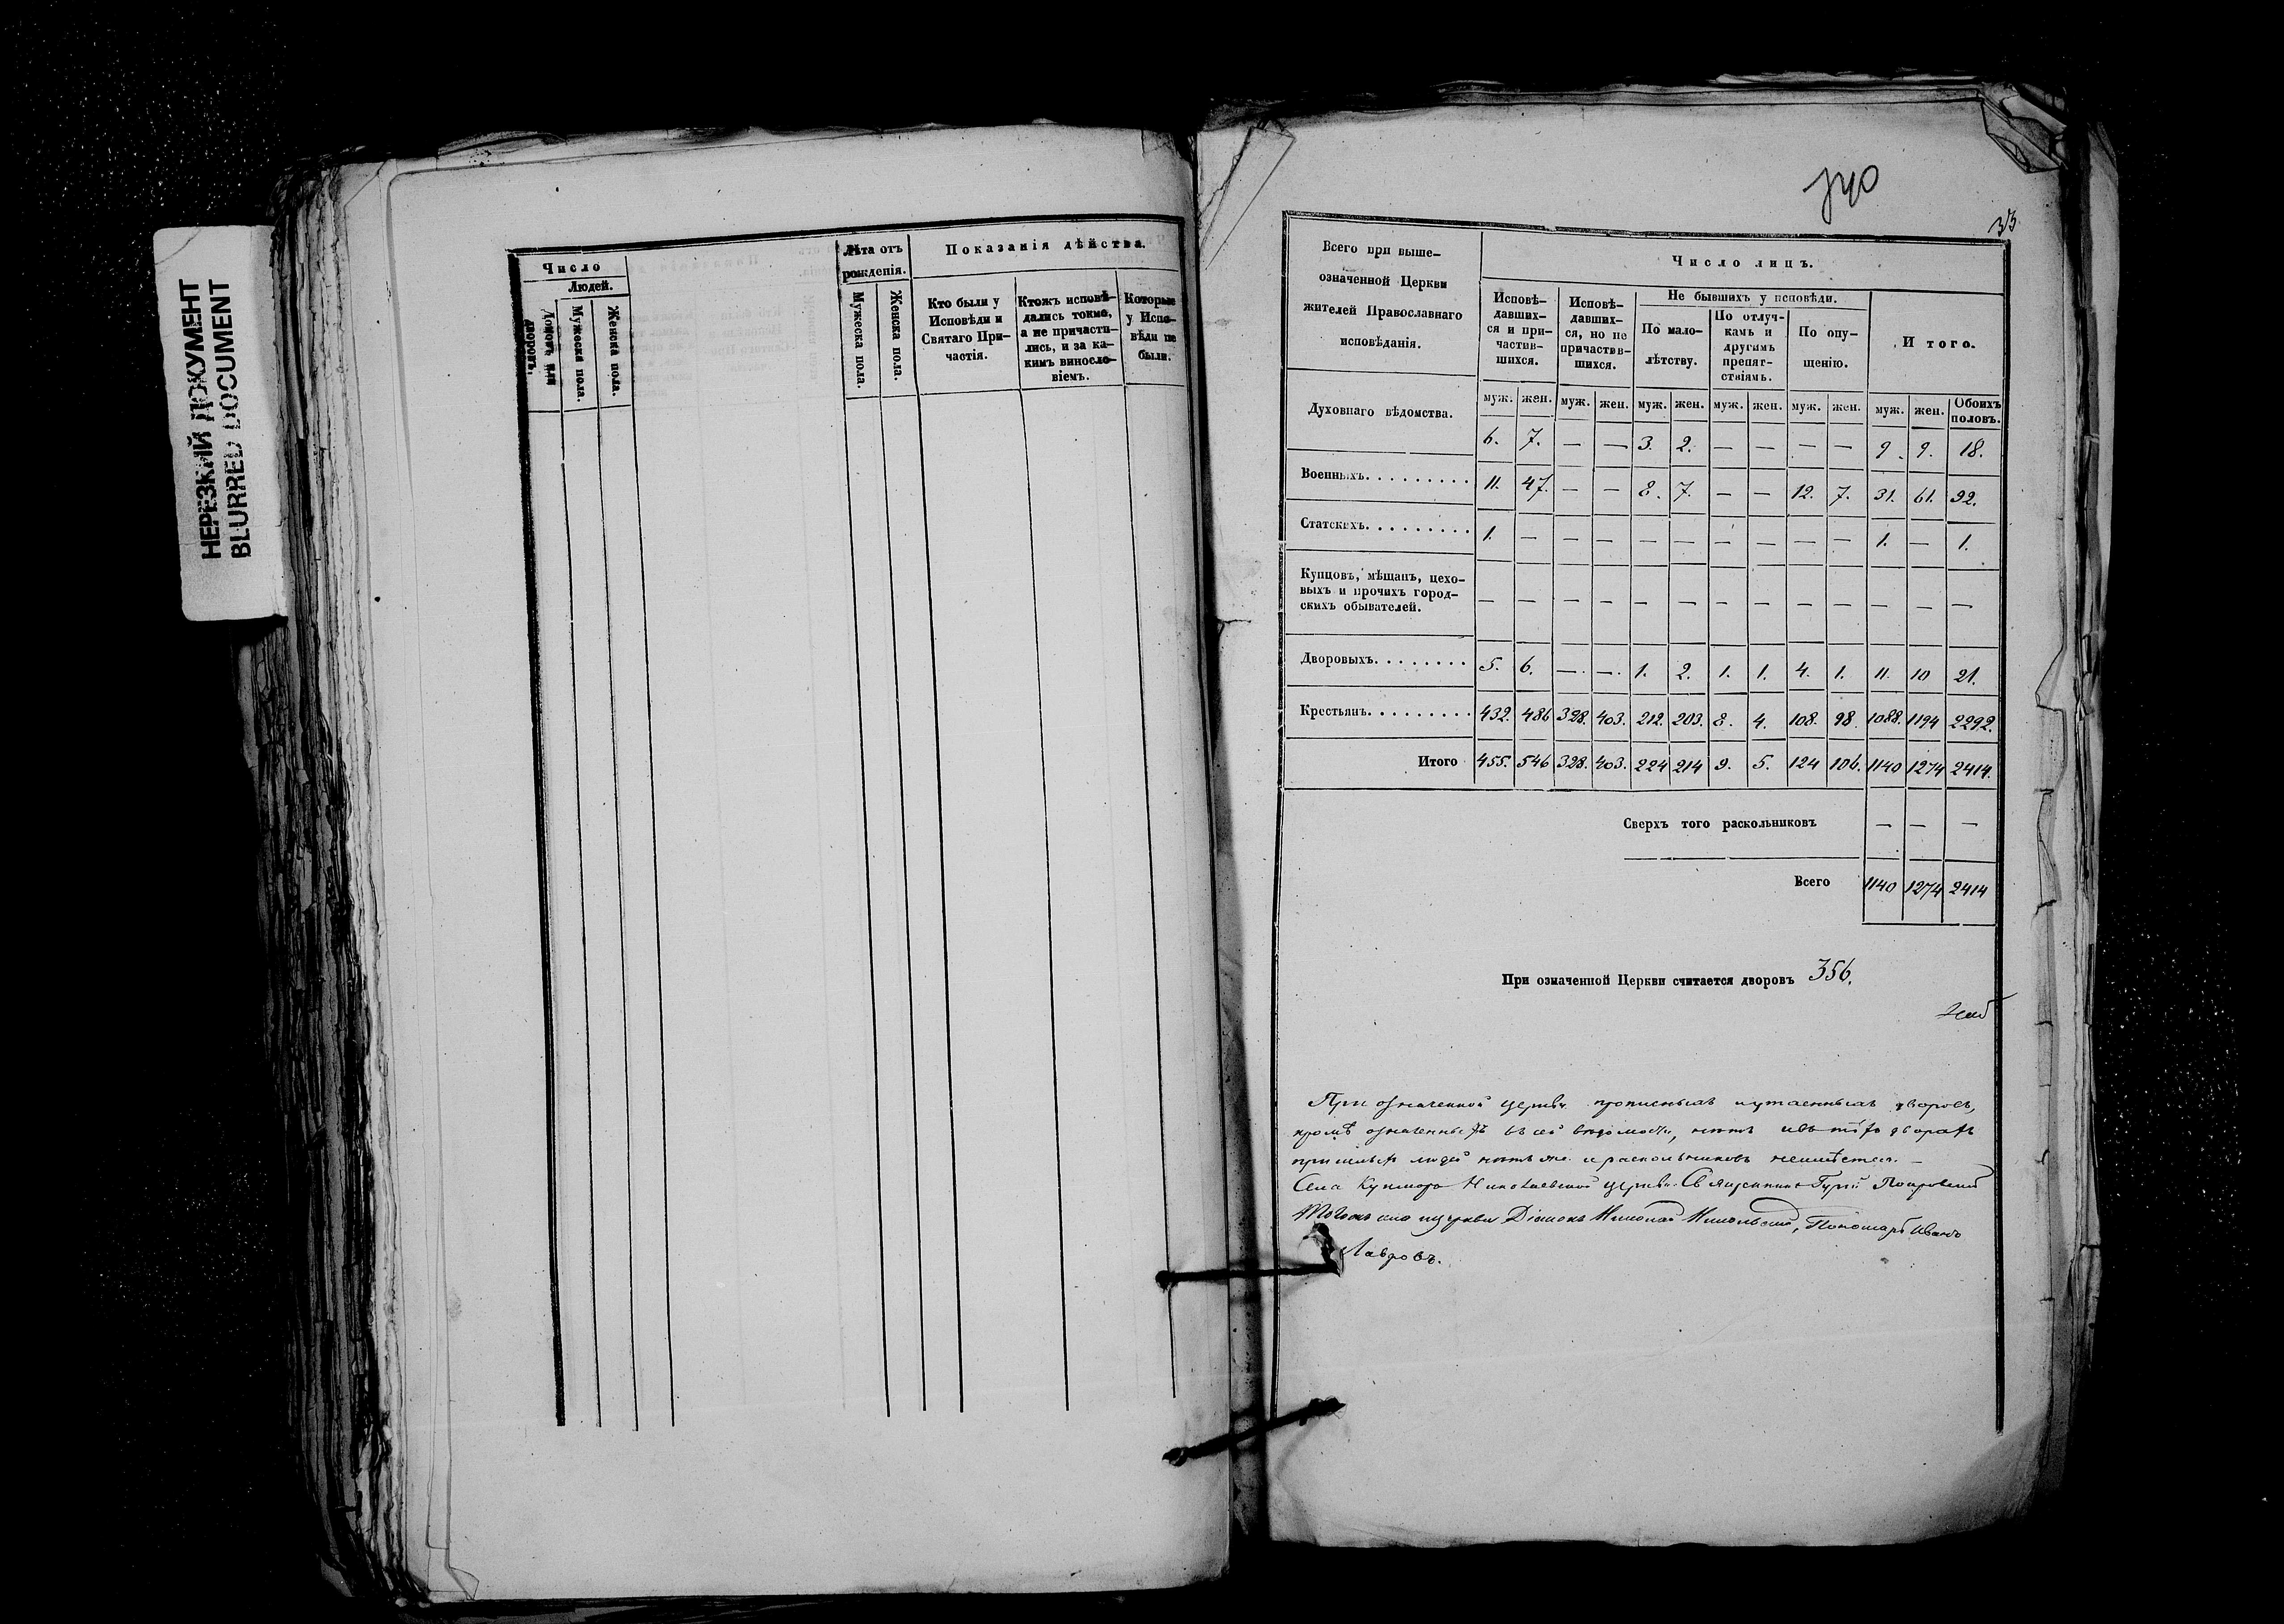 НЕРЕЗКИЙ ДОКУМЕНТ
BLURRED DOCUMENT
Число
Людей.
Домовъ или дворовъ.
Мужеска пола.
Женска пола.
Лѣта отъ рожденія.
Мужеска пола.
Женска пола.
Показанія дѣйства.
Кто были у
Исповѣди и
Святаго При-
частія.
Ктожъ исповѣ-
дались токмо,
а не причасти-
лись, и за ка-
кимъ виносло-
віемъ.
Которые
у Испо-
вѣди не
были.
340
33
Всего при выше-
означенной Церкви
жителей Православнаго
исповѣданія.
Число лицъ.
Исповѣ-
давших-
ся и при-
частив-
шихся.
Исповѣ-
давших-
ся, но не
причастив-
шихся.
Не бывшихъ у исповѣди.
По мало-
лѣтству.
По отлуч-
камъ и
другимъ
препят-
ствіямъ.
По опу-
щенію.
И того.
муж. жен. муж. жен. муж. жен. муж. жен. муж. жен. муж. жен. Обоихъ половъ.
Духовнаго вѣдомства. 6. 7. — — 3. 2. — — — — 9. 9. 18.
Военныхъ. . . . . . . . . 11. 47. — — 8. 7. — — 12. 7. 31. 61. 92.
Статскихъ. . . . . . . . . 1. — — — — — — — — — 1. — 1.
Купцовъ, мѣщанъ, цехо-
выхъ и прочихъ город-
скихъ обывателей. — — — — — — — — — — — — —
Дворовыхъ. . . . . . . . 5. 6. — — 1. 2. 1. 1. 4. 1. 11. 10 21.
Крестьянъ. . . . . . . . . 432. 486 328. 403. 212. 203. 8. 4. 108. 98. 1088. 1194 2292.
Итого 455. 546 328. 403. 224 214 9. 5. 124 106. 1140 1274 2414.
Сверхъ того раскольниковъ — — —
Всего 1140 1274 2414
При означенной Церкви считается дворовъ 356.
При означенной церкви прописныхъ и утаенныхъ дворовъ,
кромѣ означенныхъ въ сей вѣдомости, нѣтъ и въ тѣхъ дворахъ
людей нѣтъ же и раскольниковъ неимѣется. —
Села Николаевской церкви Священникъ Гурій Покровскій
церкви Діаконъ Николай Никольскій, Пономарь Иванъ
Лавровъ.